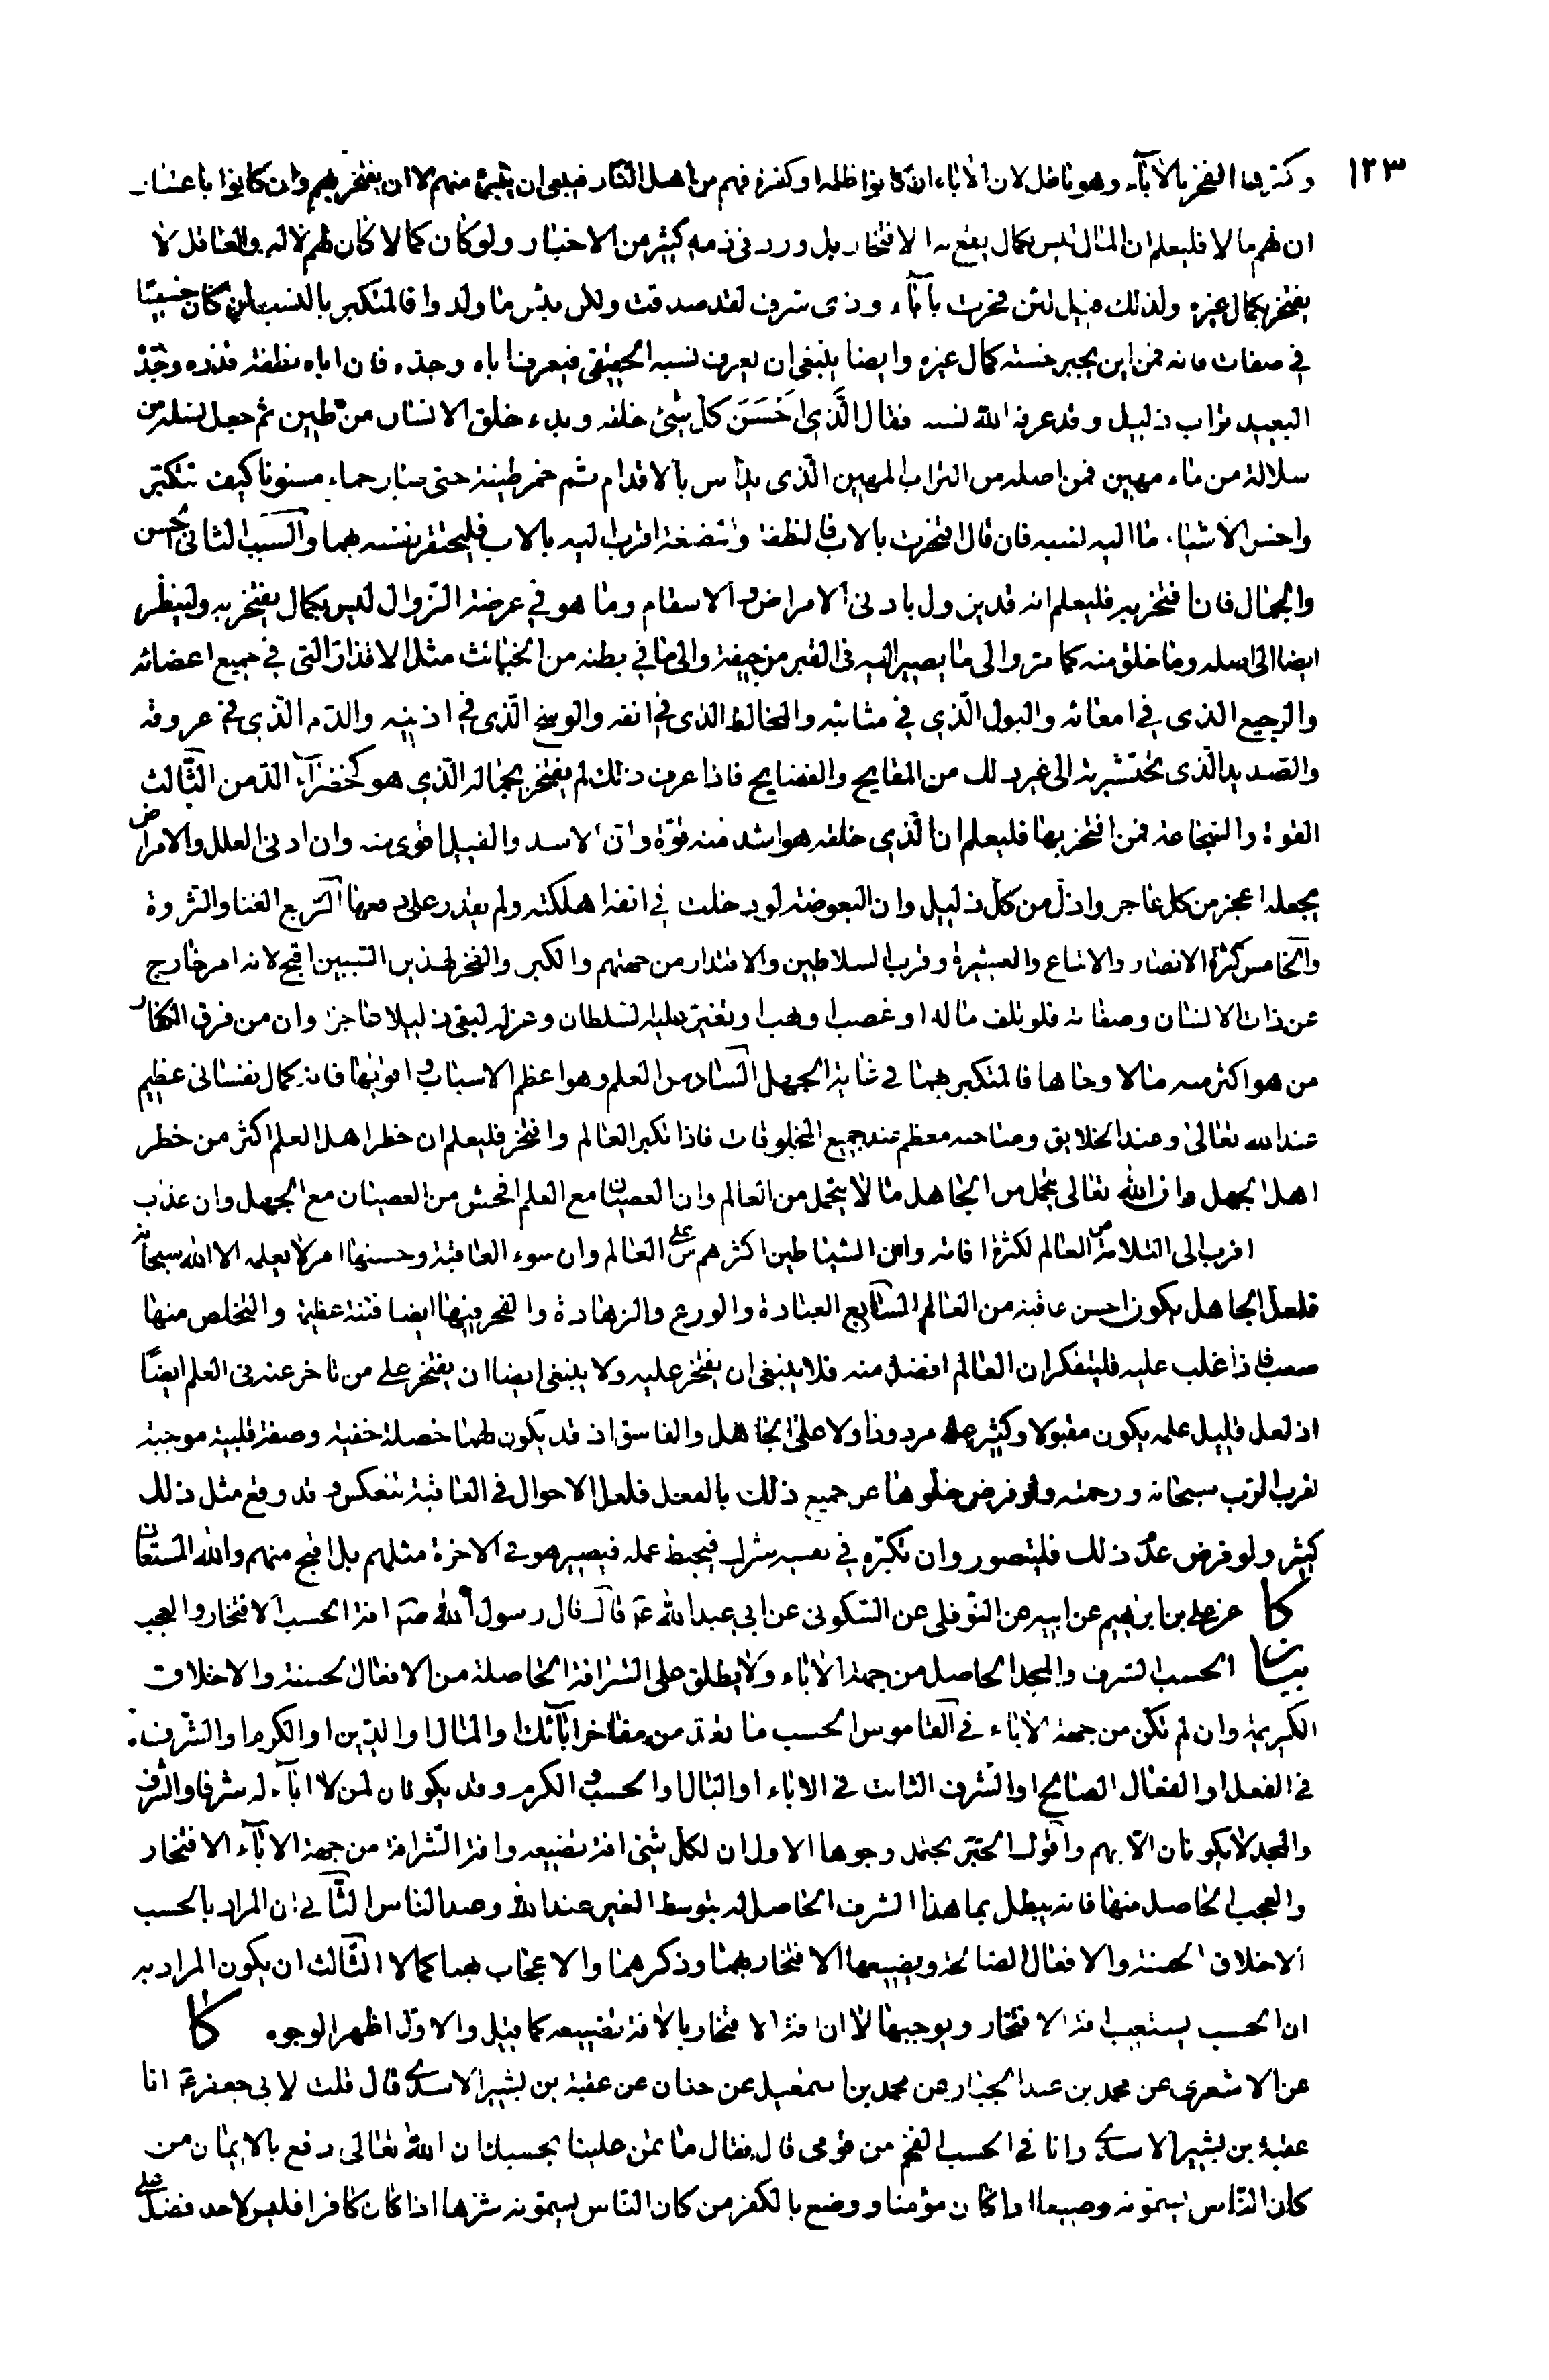 ١٢٣
وكثر بها الفخر بالاباء وهو باطل لان الاباء ان كانوا ظلمة او كفرة فهم من اهل النار فينبغي ان يتبرء منهم لا ان يفتخر بهم وان كانوا باعتبار
ان لهم مالا فليعلم ان المال ليس بكمال يقع به الافتخار بل ورد في ذمه كثير من الاخبار ولو كان كمالا كان لهم لا له والعاقل لا
يفتخر بكمال غيره ولذلك قيل لئن فخرت بآباء وذى شرف لقد صدقت ولكن بئس ما ولدوا فالمتكبر بالنسب ان كان خسيسا
في صفات ذاته فمن اين يجبر خسته كمال غيره وايضا ينبغي ان يعرف نسبه الحقيقي فيعرف اباه وجده فان اباه نطفة قذره وجده
البعيد تراب ذليل وقد عرفه الله نسبه فقال الَّذِي اَحْسَنَ كل شئ خلقه وبدء خلق الانسان من طين ثم جعل نسله من
سلالة من ماء مهين فمن اصله من التراب المهين الذى يداس بالاقدام ثم خمر طينة حتى صار حماء مسنونا كيف تتكبر
واخس الاشياء ما اليه نسبه فان قال افتخرت بالاب فالنطفة والمضغة اقرب اليه بالاب فليحتقر نفسه بهما والسبب الثانى الحسن
والجمال فان افتخر به فليعلم انه قد يزول بادنى الامراض والاسقام وما هو في عرضة الزوال ليس بكمال يفتخر به ولينظر
ايضا الى اصله وما خلق منه كما مر والى ما يصير اليه في القبر من جيفة والى ما في بطنه من الخبائث مثل الاقذار التي في جميع اعضائه
والرجيع الذى في امعائه والبول الذي في مثانته والمخاط الذى في انفه والوسخ الذى في اذنيه والدم الذي في عروقه
والصديد الذى تحت بشرته الى غير ذلك من المقابح والفضايح فاذا عرف ذلك لم يفتخر بجماله الذي هو كخضراء الدمن الثالث
القوة والشجاعة فمن افتخر بها فليعلم ان الذي خلقه هو اشد منه قوة وان الاسد والفيل اقوى منه وان ادنى العلل والامراض
يجعله اعجز من كل عاجز واذل من كل ذليل وان البعوضة لو دخلت في انفه اهلكته ولم يقدر على دفعها الرابع الغنا والثروة
والخامس كثرة الانصار والاتباع والعشيرة وقرب السلاطين والاقتدار من جهتهم والكبر والفخر لهذين السببين اقبح لانه امر خارج
عن ذات الانسان وصفاته فلو تلف ماله او غصب او نهب او تغير عليه السلطان وعزله لبقى ذليلا عاجزا وان من فرق الكفار
من هو اكثر منه مالا وجاها فالمتكبر بهما في غاية الجهل السادس العلم وهو اعظم الاسباب واقواها فانه كمال نفساني عظيم
عند الله تعالى وعند الخلايق وصاحبه معظم عند جميع المخلوقات فاذا تكبر العالم وافتخر فليعلم ان خطر اهل العلم اكثر من خطر
اهل الجهل وان الله تعالى يتحمل من الجاهل ما لا يتحمل من العالم وان العصيان مع العلم افحش من العصيان مع الجهل وان عذب
اقرب الى السلامة من العالم لكثرة آفاته وان الشياطين اكثرهم على العالم وان سوء العاقبة وحسنها امر لا يعلمه الا الله سبحانه
فلعل الجاهل يكون احسن عاقبة من العالم السابع العبادة والورع والزهادة والفخر فيها ايضا فتنة عظيمة والتخلص منها
صعب فاذا غلب عليه فليتفكر ان العالم افضل منه فلا ينبغي ان يفتخر عليه ولا ينبغي ايضا ان يفتخر على من تاخر عنه في العلم ايضا
اذ لعل قليل علمه يكون مقبولا وكثير علمه مردودا ولا على الجاهل والفاسق اذ قد يكون لهما خصلة خفية وصفة قلبية موجبة
لقرب الرب سبحانه ورحمته ولو فرض خلوهما عن جميع ذلك بالفعل فلعل الاحوال في العاقبة تنعكس وقد وقع مثل ذلك
كثير ولو فرض عدم ذلك فليتصور وان تكبره في نفسه شرك فيحبط عمله فيصير هو في الاخرة مثلهم بل اقبح منهم والله المستعان
كا عن علي بن ابرهيم عن ابيه عن النوفلى عن السكونى عن ابي عبد الله ع قال قال رسول الله ص افة الحسب الافتخار والعجب
بيان الحسب الشرف والمجد الحاصل من جهة الاباء ولا يطلق على الشرافة الحاصلة من الافعال الحسنة والاخلاق
الكريمة وان لم تكن من جهة الاباء في القاموس الحسب ما تعده من مفاخر ابائك او المال او الدين او الكرم او الشرف
في الفعل او الفعال الصالح او الشرف الثابت في الاباء او البال او الحسب والكرم وقد يكونان لمن لا اباء له شرفا والشرف
والمجد لا يكونان الا بهم واقول الخبر يحتمل وجوها الاول ان لكل شئ افة تضيعه وافة الشرافة من جهة الاباء الافتخار
والعجب الحاصل منها فانه يبطل بهما هذا الشرف الحاصل له بتوسط الغير عند الله وعند الناس الثاني ان المراد بالحسب
الاخلاق الحسنة والافعال الصالحة ويضيعها الافتخار بهما وذكرهما والاعجاب بهما كمالا الثالث ان يكون المراد به
ان الحسب يستعيب افة الافتخار ويوجبها لا ان افة الافتخار بالافة تضييعه كما قيل والاول اظهر الوجوه كا
عن الاشعرى عن محمد بن عبد الجبار عن محمد بن اسمعيل عن حنان عن عقبة بن بشير الاسدي قال قلت لابي جعفر ع انا
عقبة بن بشير الاسدي وانا في الحسب الضخم من قومى قال فقال ما تمن علينا بحسبك ان الله تعالى رفع بالايمان من
كان الناس يسمونه وضيعا اذا كان مؤمنا ووضع بالكفر من كان الناس يسمونه شريفا اذا كان كافرا فليس لاحد فضل على